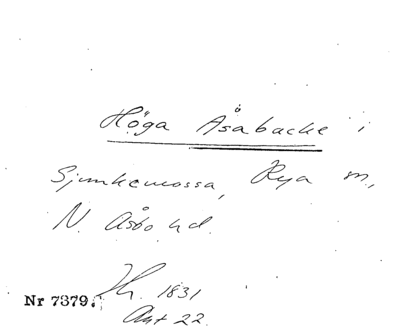 Höga Åsabacke i
Sjunkemossa, Rya m.,
N. Åsbo hd.
Nr 7379. 1831
Akt 22.